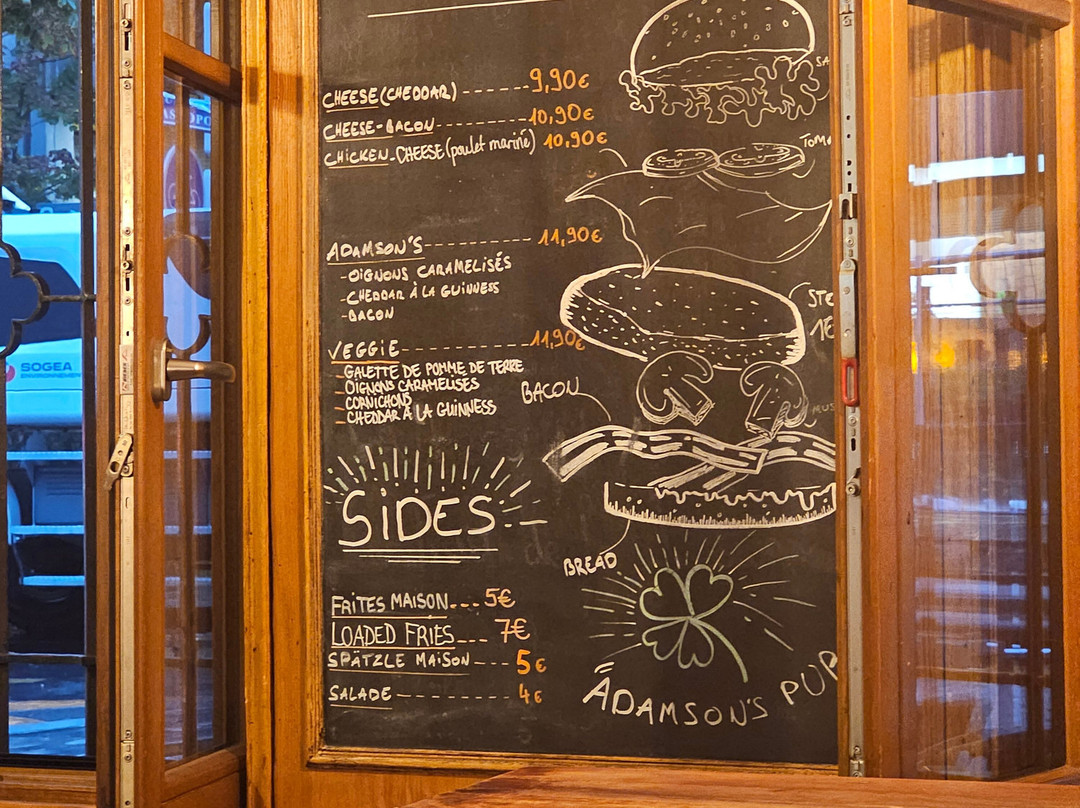 CHEESE (CHEDDAR) ------ 9,90€
CHEESE-BACON ---------- 10,90€
CHICKEN-CHEESE (poulet mariné) 10,90€
ADAMSON'S ----------- 11,90€
-OIGNONS CARAMELISÉS
-CHEDDAR À LA GUINNESS
-BACON
VEGGIE -------------- 11,90€
- GALETTE DE POMME DE TERRE
- OIGNONS CARAMELISES
- CORNICHONS
- CHEDDAR À LA GUINNESS
BACON
SiDES
BREAD
FRITES MAISON --- 5€
LOADED FRIES --- 7€
SPÄTZLE MAISON --- 5€
SALADE ----------- 4€
ADAMSON'S PUB
SOGEA
ENVIRONNEMENT